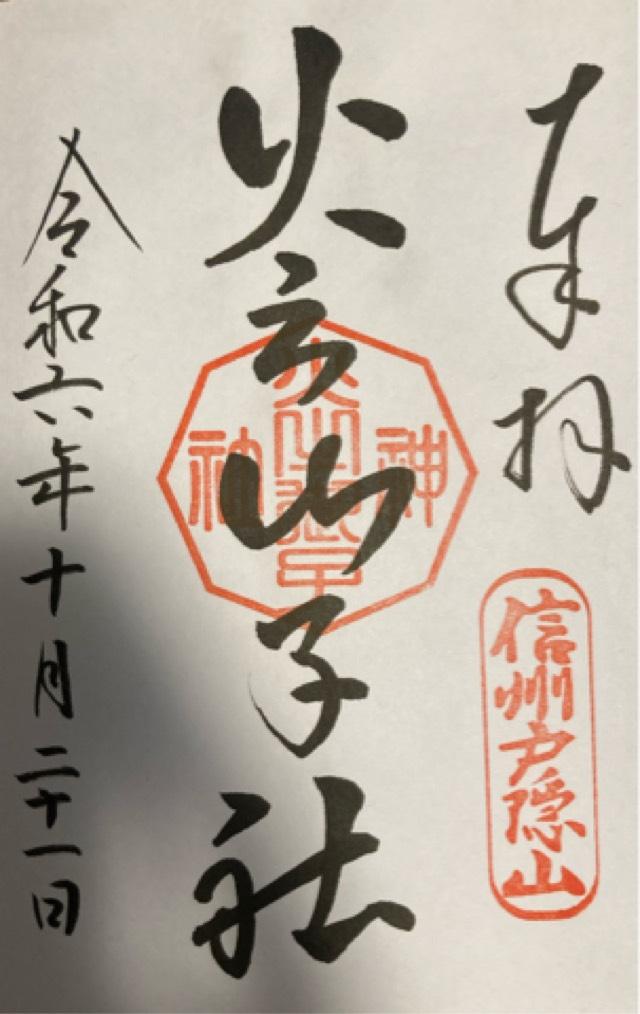 奉拝
信州戸隠山
火之御子社
令和六年十月二十一日